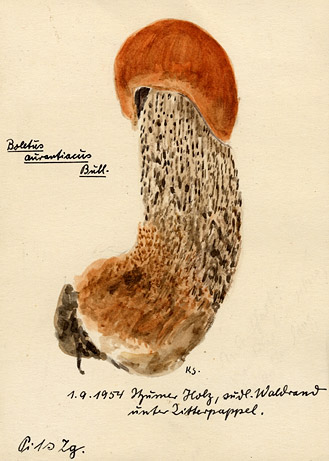 Boletus
aurantiacus
Bull.
KS.
1.9.1954 Holz, südl. Waldrand
unter Zitterpappel.